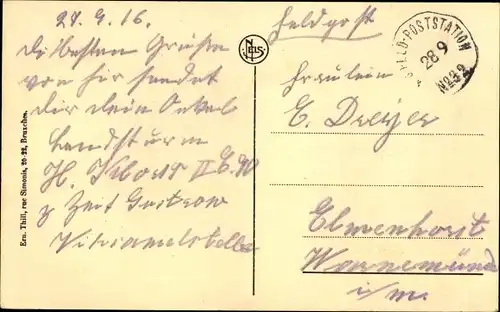 27. 9. 16.
Die besten Grüße
von hir sendet
dir dein Onkel
Landsturm
H.
z Zeit Güstrow
Feldpost
NELS
FELD-POSTSTATION
28 9
No
Fräulein
E. Dreyer
Elmenhorst
Warnemünde
i/m.
Ern. Thill, rue Simonis, 20-22, Bruxelles.